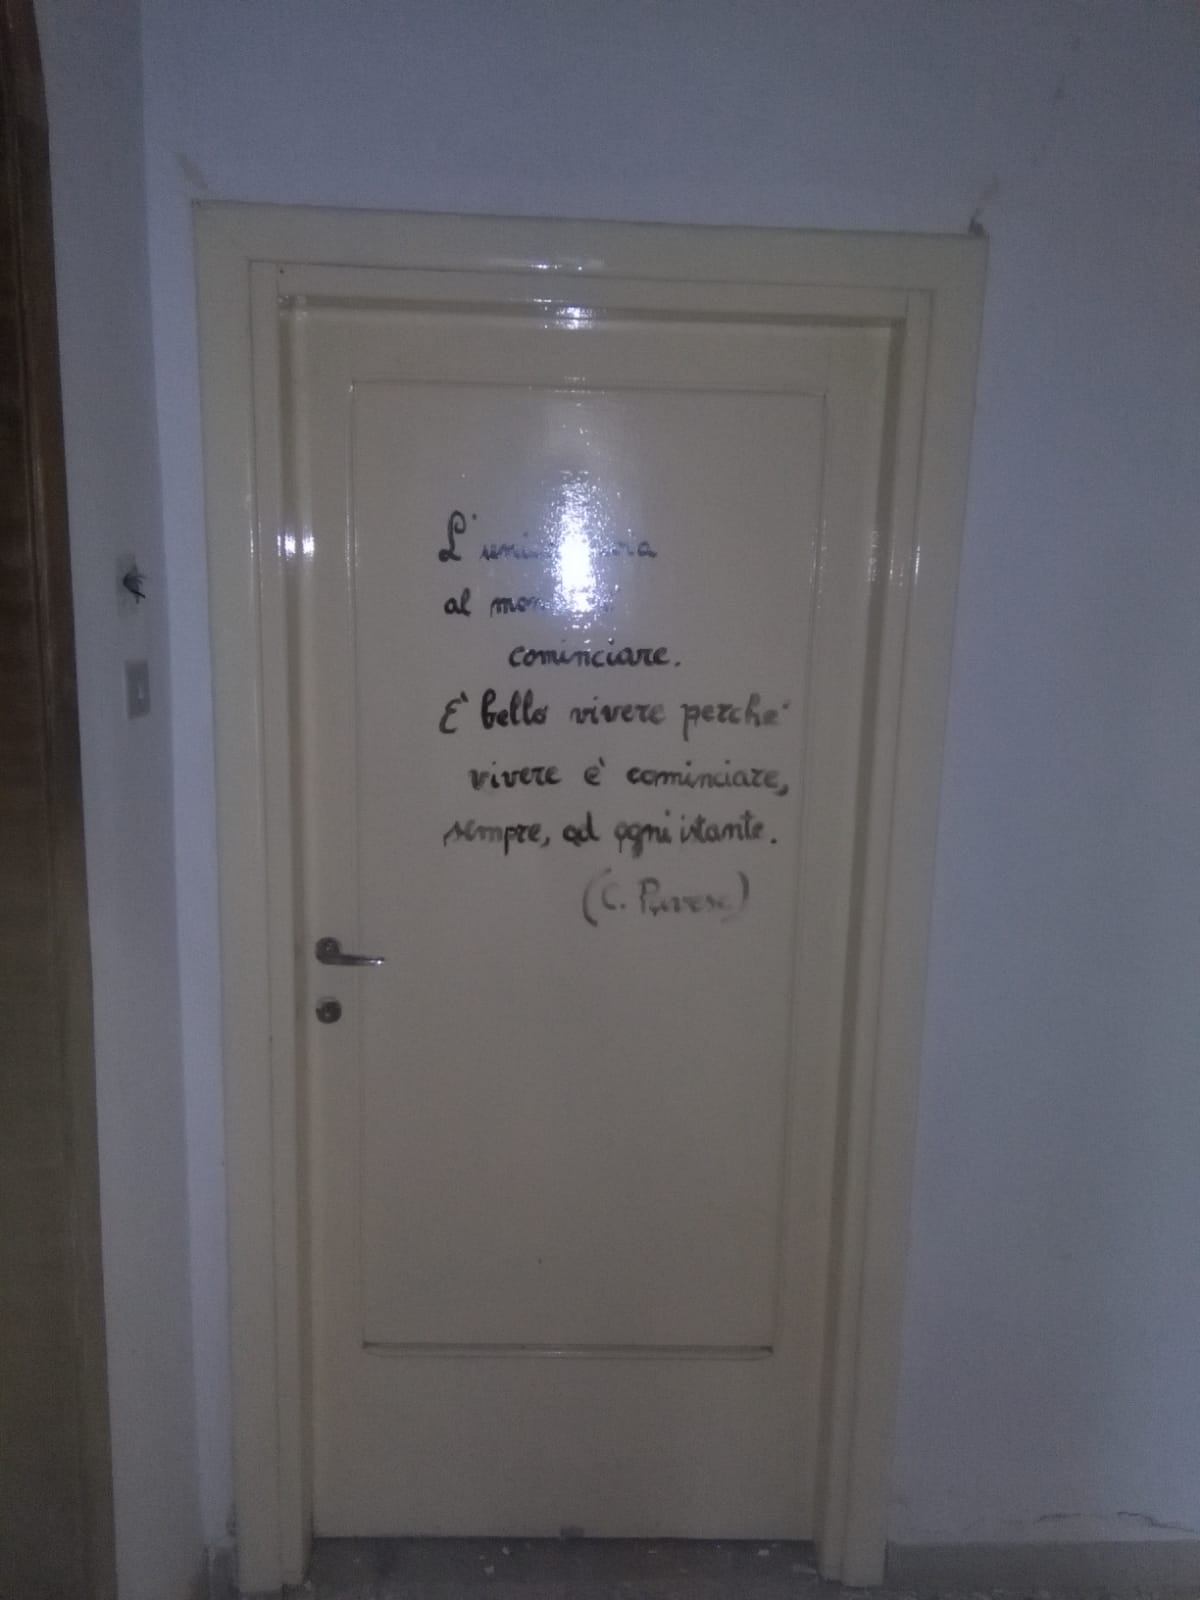 L'
al
cominciare.
E' bello vivere perche'
vivere e' cominciare,
sempre, ad ogni istante.
(C. Pavese)